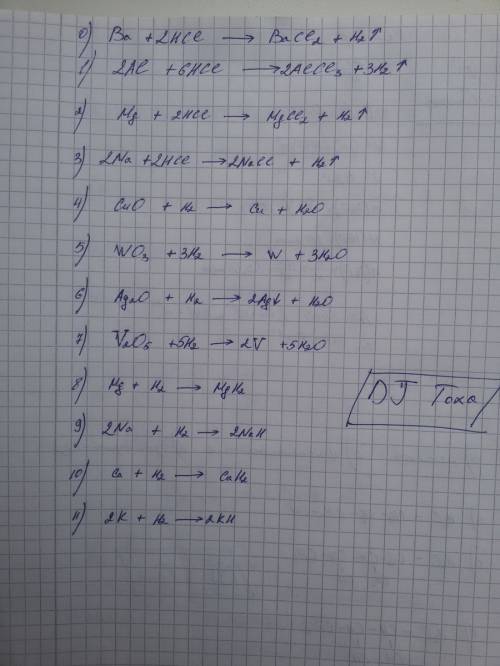 0) Ba + 2HCl → BaCl₂ + H₂↑
1) 2Al + 6HCl → 2AlCl₃ + 3H₂↑
2) Mg + 2HCl → MgCl₂ + H₂↑
3) 2Na + 2HCl → 2NaCl + H₂↑
4) CuO + H₂ → Cu + H₂O
5) WO₃ + 3H₂ → W + 3H₂O
6) Ag₂O + H₂ → 2Ag↓ + H₂O
7) V₂O₅ + 5H₂ → 2V + 5H₂O
DJ Тоха
8) Mg + H₂ → MgH₂
9) 2Na + H₂ → 2NaH
10) Ca + H₂ → CaH₂
11) 2K + H₂ → 2KH